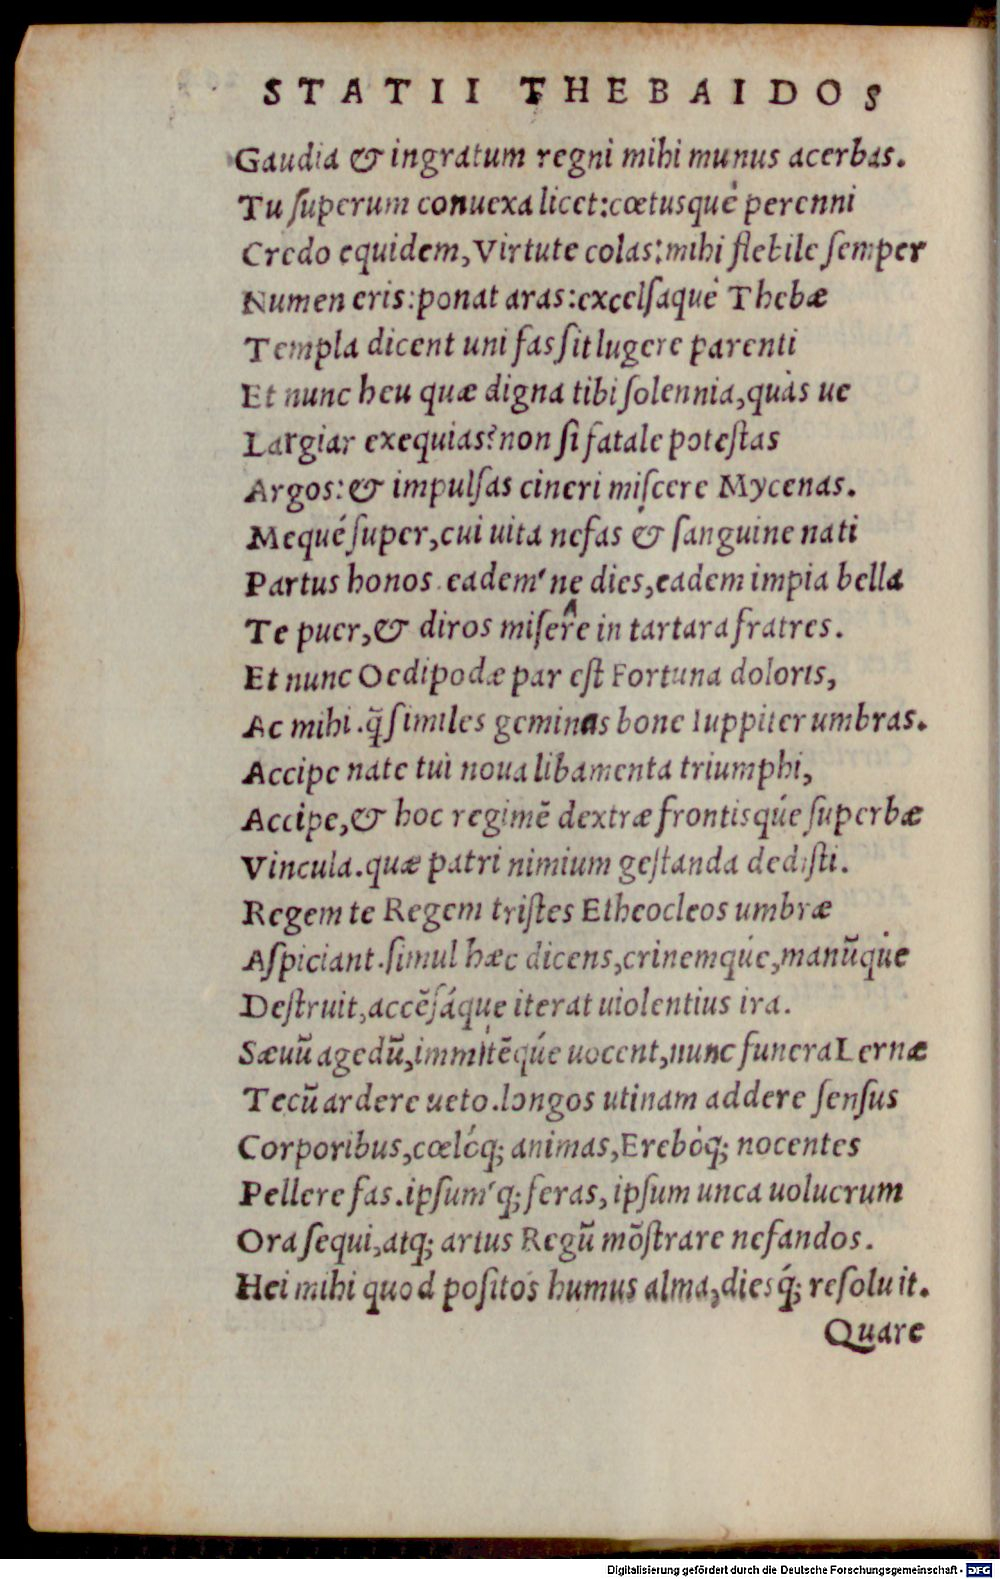 STATII THEBAIDOS
Gaudia & ingratum regni mihi munus acerbas.
Tu ſuperum conuexa licet:cœtusqué perenni
Credo equidem,Virtute colas:mihi flebile ſemper
Numen eris:ponat aras:excelſaqué Thebæ
Templa dicent uni fas ſit lugere parenti
Et nunc heu quæ digna tibi ſolennia,quàs ue
Largiar exequias?non ſi fatale poteſtas
Argos:& impulſas cineri miſcere Mycenas.
Mequé ſuper,cui uita nefas & ſanguine nati
Partus honos.eadem'ne dies,eadem impia bella
Te puer,& diros miſere in tartara fratres.
Et nunc Oedipodæ par eſt Fortuna doloris,
Ac mihi.q̃ ſimiles geminas bone Iuppiter umbras.
Accipe nate tui noua libamenta triumphi,
Accipe,& hoc regimẽ dextræ frontisqúe ſuperbæ
Vincula.quæ patri nimium geſtanda dediſti.
Regem te Regem triſtes Etheocleos umbræ
Aſpiciant.ſimul hæc dicens,crinemqúe,manũque
Deſtruit,accẽſáque iterat uiolentius ira.
Sæuũ agedũ,immitẽqúe uocent,nunc funera Lernæ
Tecũ ardere ueto.longos utinam addere ſenſus
Corporibus,cœlóq; animas,Erebóq; nocentes
Pellere fas.ipſum'q; feras, ipſum unca uolucrum
Ora ſequi,atq; artus Regũ mõſtrare nefandos.
Hei mihi quod poſitos humus alma,diesq́; reſoluit.
Quare
Digitalisierung gefördert durch die Deutsche Forschungsgemeinschaft - DFG